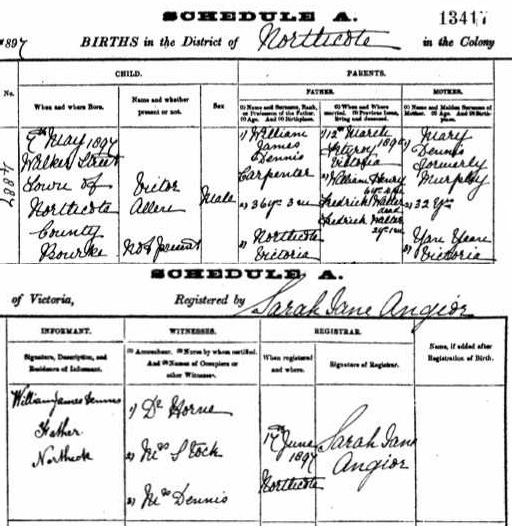 SCHEDULE A.
13417
1897 BIRTHS in the District of Northcote in the Colony
CHILD.
PARENTS.
No.
When and where Born.
Name and whether present or not.
Sex
FATHER.
(1) Name and Surname, Rank, or Profession of the Father. (2) Age. And (3) Birthplace.
(1) When and Where married. (2) Previous Issue, living and deceased.
MOTHER.
(1) Name and Maiden Surname of Mother. (2) Age. And (3) Birthplace.
4887
7th May 1897
Walker Street
Town of
Northcote
County
Bourke
Victor
Allen
Not present
Male
1) William
James
Dennis
Carpenter
2) 36 yr 3 m
3) Northcote
Victoria
1) 12th March
1890
Fitzroy
Victoria
2) William Henry
Fredrick Walter
dead
Fredrick Walter
1) Mary
Dennis
formerly
Murphy
2) 32 yrs
3) Yan Yean
Victoria
SCHEDULE A.
of Victoria, Registered by Sarah Jane Angior
INFORMANT.
WITNESSES.
REGISTRAR.
Signature, Description, and Residence of Informant.
(1) Accoucheur. (2) Nurse by whom certified. And (3) Names of Occupiers or other Witnesses.
When registered and where.
Signature of Registrar.
Name, if added after Registration of Birth.
William James Dennis
Father
Northcote
1) Dr Horne
2) Mrs Stock
3) Mrs Dennis
17th June
1897
Northcote
Sarah Jane
Angior